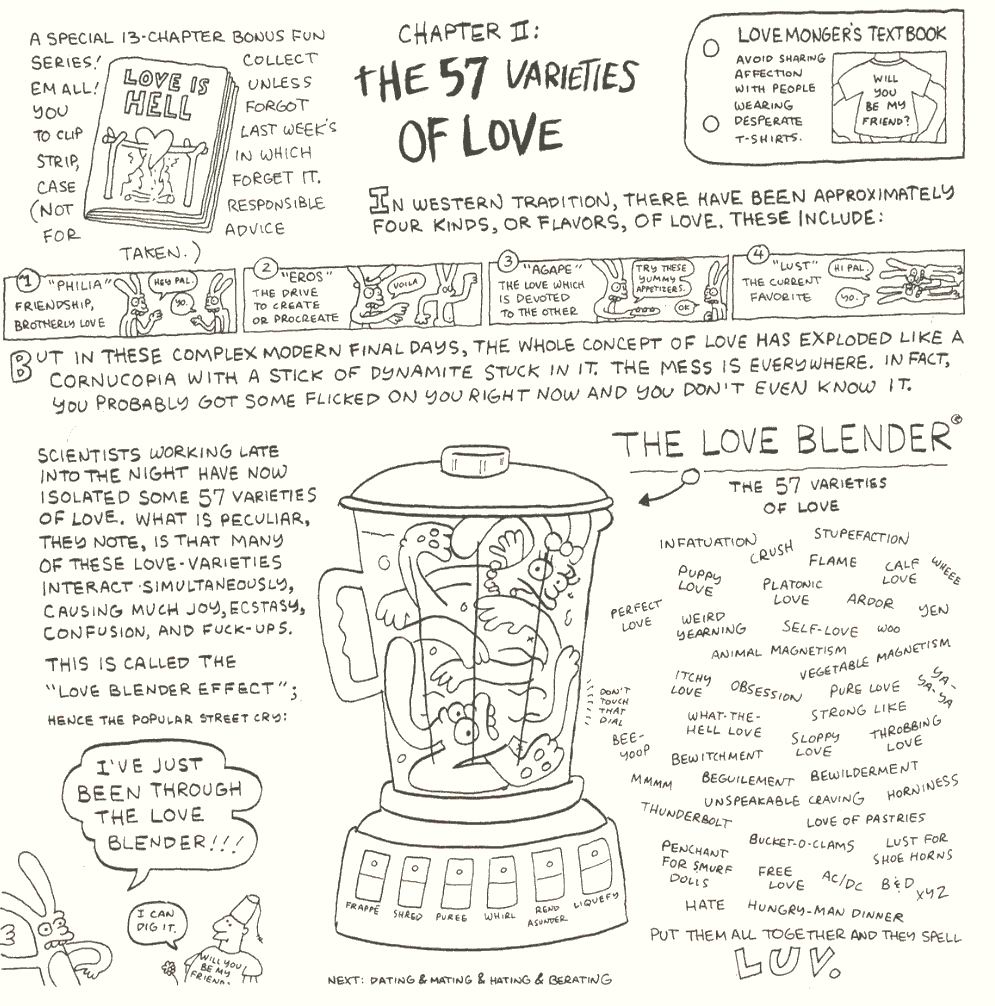 A SPECIAL 13-CHAPTER BONUS FUN
SERIES! COLLECT
EM ALL! UNLESS
YOU FORGOT
TO CLIP LAST WEEK'S
STRIP, IN WHICH
CASE FORGET IT.
(NOT RESPONSIBLE
FOR ADVICE
TAKEN.)
LOVE IS
HELL
CHAPTER II:
THE 57 VARIETIES
OF LOVE
LOVEMONGER'S TEXTBOOK
AVOID SHARING
AFFECTION
WITH PEOPLE
WEARING
DESPERATE
T-SHIRTS.
WILL
YOU
BE MY
FRIEND?
IN WESTERN TRADITION, THERE HAVE BEEN APPROXIMATELY
FOUR KINDS, OR FLAVORS, OF LOVE. THESE INCLUDE:
1 "PHILIA"
FRIENDSHIP,
BROTHERLY LOVE
HEY PAL.
YO.
2 "EROS"
THE DRIVE
TO CREATE
OR PROCREATE
VOILA
3 "AGAPE"
THE LOVE WHICH
IS DEVOTED
TO THE OTHER
TRY THESE
YUMMY
APPETIZERS.
OK
4 "LUST"
THE CURRENT
FAVORITE
HI PAL.
YO.
BUT IN THESE COMPLEX MODERN FINAL DAYS, THE WHOLE CONCEPT OF LOVE HAS EXPLODED LIKE A
CORNUCOPIA WITH A STICK OF DYNAMITE STUCK IN IT. THE MESS IS EVERYWHERE. IN FACT,
YOU PROBABLY GOT SOME FLICKED ON YOU RIGHT NOW AND YOU DON'T EVEN KNOW IT.
SCIENTISTS WORKING LATE
INTO THE NIGHT HAVE NOW
ISOLATED SOME 57 VARIETIES
OF LOVE. WHAT IS PECULIAR,
THEY NOTE, IS THAT MANY
OF THESE LOVE-VARIETIES
INTERACT SIMULTANEOUSLY,
CAUSING MUCH JOY, ECSTASY,
CONFUSION, AND FUCK-UPS.
THIS IS CALLED THE
"LOVE BLENDER EFFECT";
HENCE THE POPULAR STREET CRY:
I'VE JUST
BEEN THROUGH
THE LOVE
BLENDER!!!
I CAN
DIG IT.
WILL YOU
BE MY
FRIEND.
FRAPPÉ
SHRED
PUREE
WHIRL
REND
ASUNDER
LIQUEFY
DON'T
TOUCH
THAT
DIAL
THE LOVE BLENDER©
THE 57 VARIETIES
OF LOVE
INFATUATION
CRUSH
STUPEFACTION
PUPPY
LOVE
FLAME
CALF
LOVE
WHEEE
PLATONIC
LOVE
ARDOR
YEN
PERFECT
LOVE
WEIRD
YEARNING
SELF-LOVE
WOO
ANIMAL MAGNETISM
VEGETABLE MAGNETISM
ITCHY
LOVE
OBSESSION
PURE LOVE
YA-
YA-YA
WHAT-THE-
HELL LOVE
STRONG LIKE
BEE-
YOOP
BEWITCHMENT
SLOPPY
LOVE
THROBBING
LOVE
MMMM
BEGUILEMENT
BEWILDERMENT
UNSPEAKABLE CRAVING
HORNINESS
THUNDERBOLT
LOVE OF PASTRIES
PENCHANT
FOR SMURF
DOLLS
BUCKET-O-CLAMS
LUST FOR
SHOE HORNS
FREE
LOVE
AC/DC
B&D
XYZ
HATE
HUNGRY-MAN DINNER
PUT THEM ALL TOGETHER AND THEY SPELL
LUV.
NEXT: DATING & MATING & HATING & BERATING